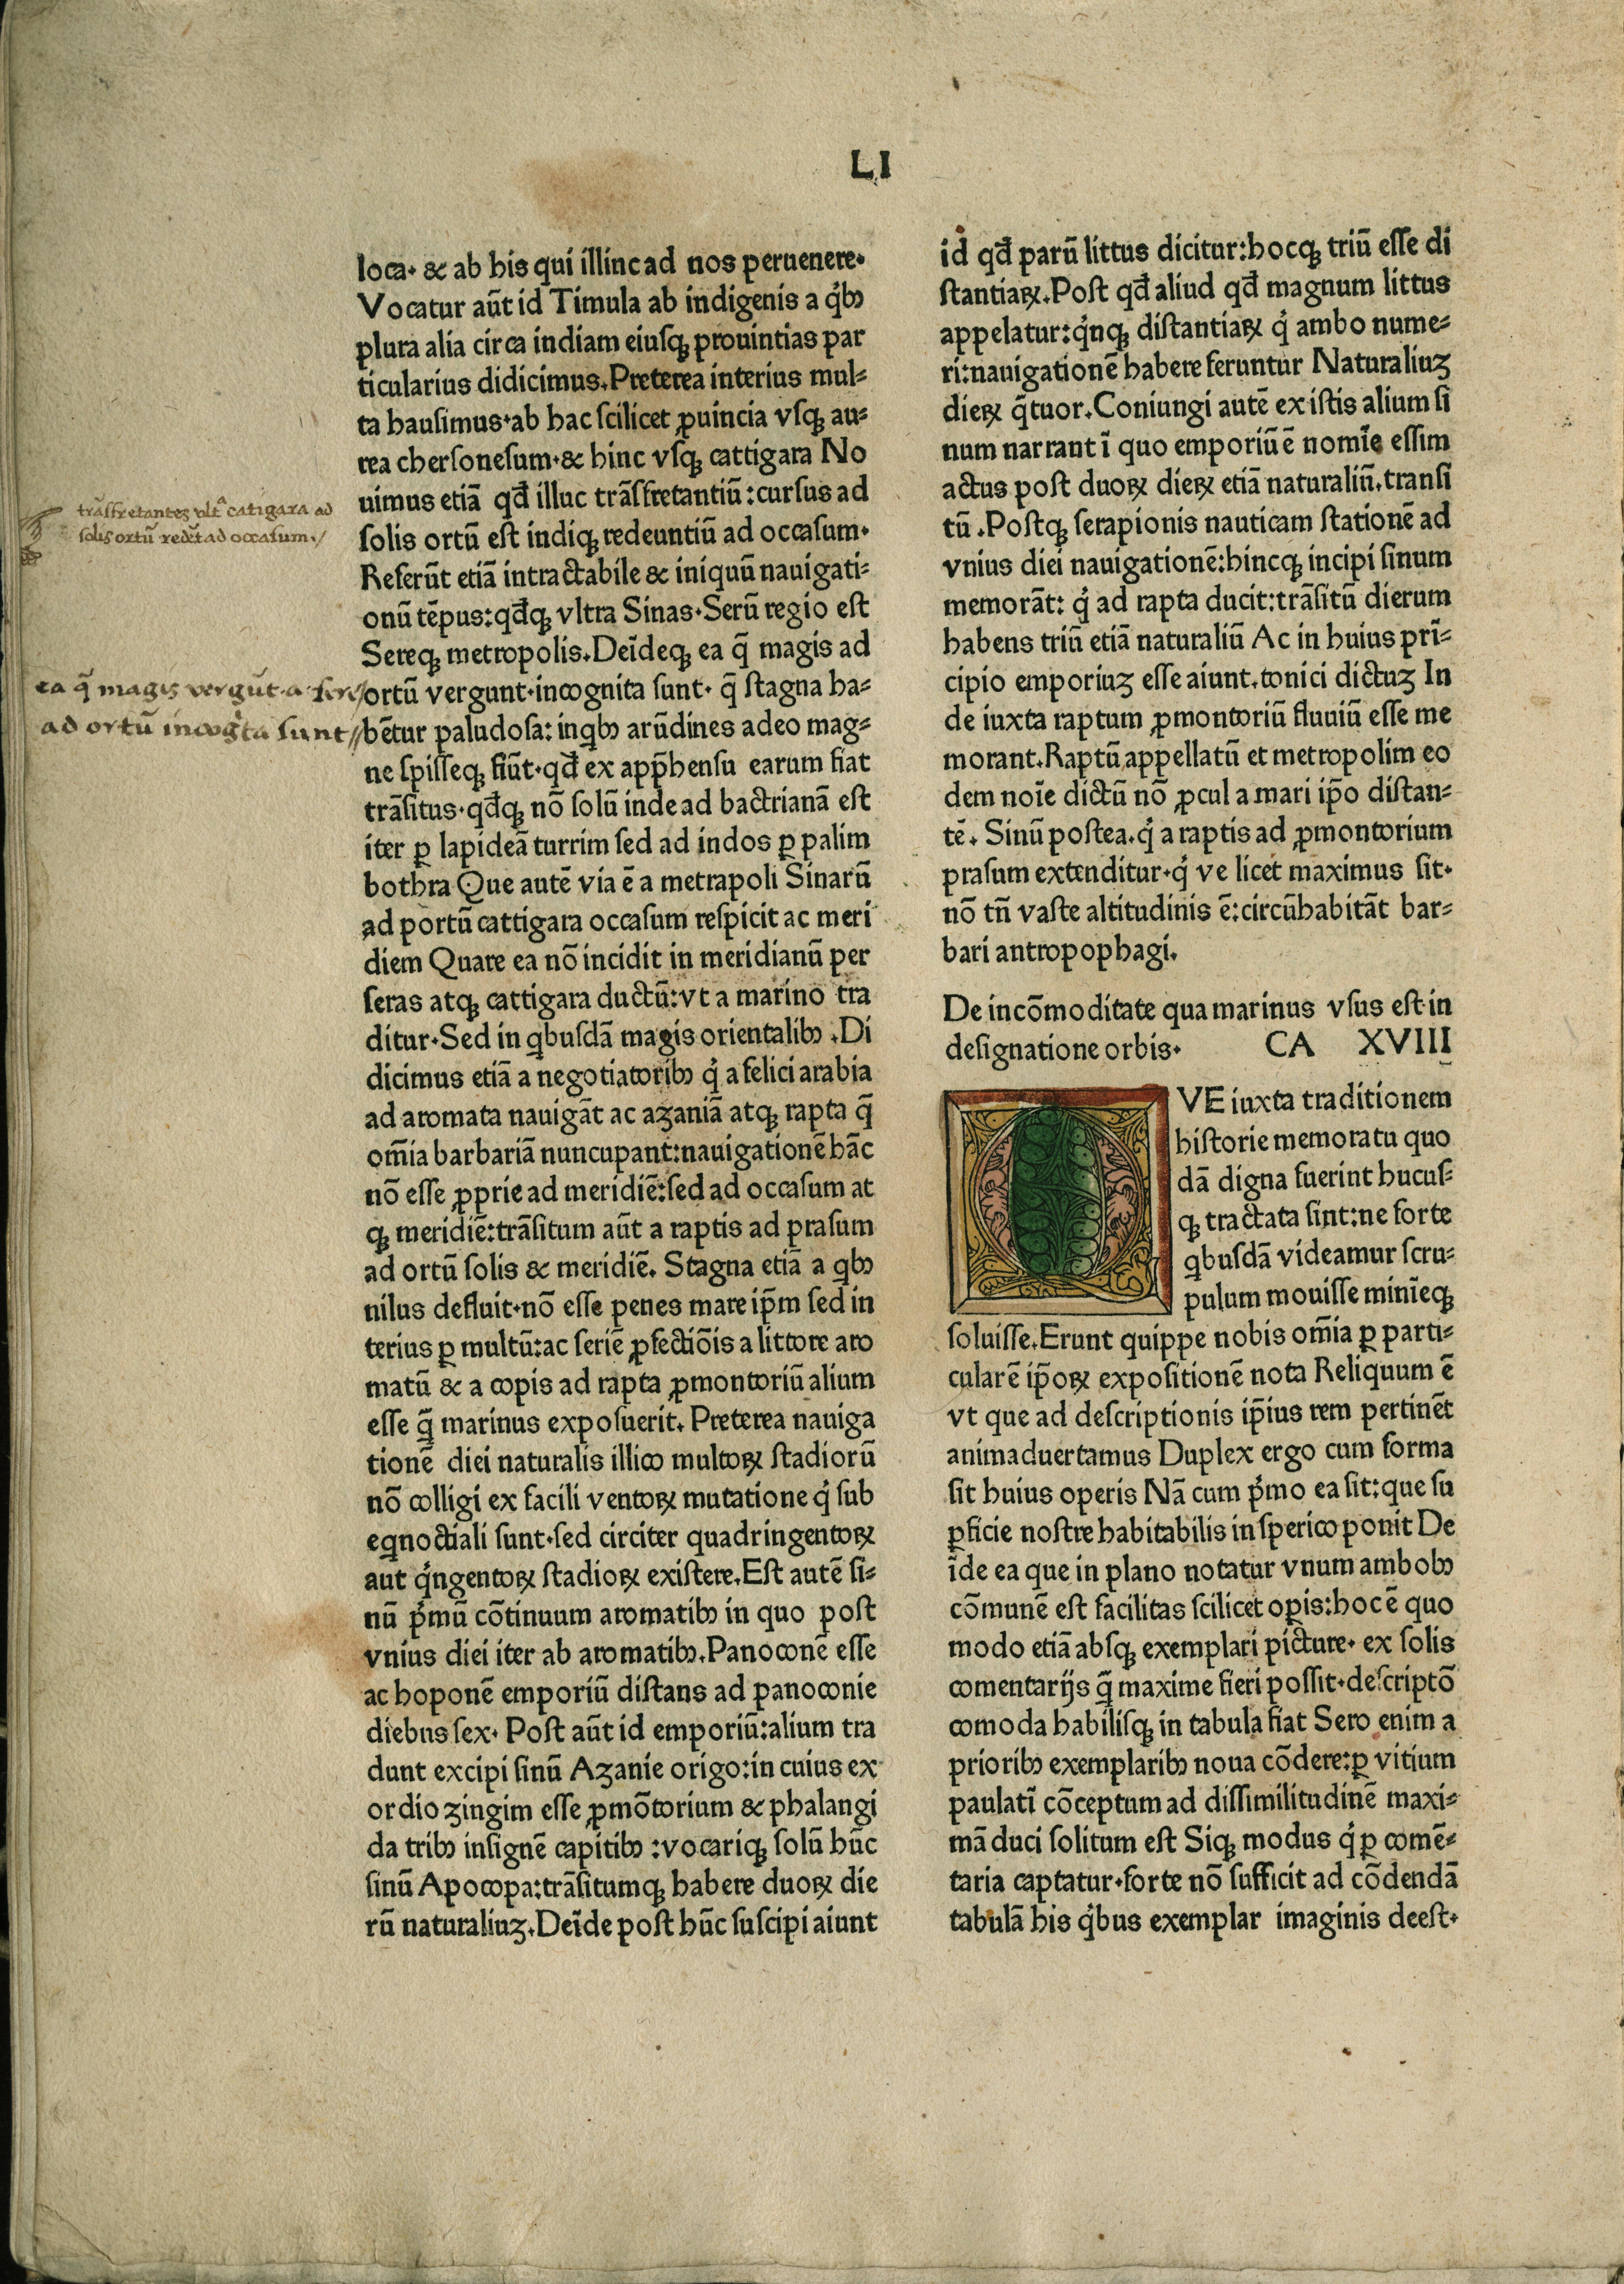 LI
loca· & ab his qui illinc ad nos peruenere·
Vocatur aūt id Timula ab indigenis a q̇bꝫ
plura alia circa indiam eiusqꝫ prouintias par
ticularius didicimus.Preterea interius mul⸗
ta hausimus·ab hac scilicet ꝓuincia vsqꝫ au⸗
rea chersonesum·& hinc vsqꝫ cattigara No
uimus etiā qđ illuc trāsfretantiū:cursus ad
solis ortū est indiqꝫ redeuntiū ad occasum·
Referūt etiā intractabile & iniquū nauigati⸗
onū tēpus:qđqꝫ vltra Sinas·Serū regio est
Sereqꝫ metropolis.Deīdeqꝫ ea q̄ magis ad
ortū vergunt·incognita sunt· q̄ stagna ha⸗
bētur paludosa: inqbꝫ arūdines adeo mag⸗
ne spisseqꝫ fiūt·qđ ex app̄hensu earum fiat
trāsitus·qđqꝫ nō solū inde ad bactrianā est
iter ꝑ lapideā turrim sed ad indos ꝑ palim
bothra Que autē via ē a metrapoli Sinarū
ad portū cattigara occasum respicit ac meri
diem Quare ea nō incidit in meridianū per
seras atqꝫ cattigara ductū:vt a marino tra
ditur·Sed in qbusdā magis orientalibꝫ .Di
dicimus etiā a negotiatoribꝫ q̇ a felici arabia
ad aromata nauigāt ac azaniā atqꝫ rapta q̄
om̄ia barbariā nuncupant:nauigationē hāc
nō esse ꝓprie ad meridiē:sed ad occasum at
qꝫ meridiē:trāsitum aūt a raptis ad prasum
ad ortū solis & meridiē. Stagna etiā a qbꝫ
nilus defluit·nō esse penes mare ip̄m sed in
terius ꝑ multū:ac seriē ꝓfectiōis a littore aro
matū & a copis ad rapta ꝓmontoriū alium
esse q̄ marinus exposuerit. Preterea nauiga
tionē diei naturalis illico multoꝝ stadiorū
nō colligi ex facili ventoꝝ mutatione q̇ sub
eqnoctiali sunt·sed circiter quadringentoꝝ
aut q̇ngentoꝝ stadioꝝ existere.Est autē si⸗
nū p̓mū cōtinuum aromatibꝫ in quo post
vnius diei iter ab aromatibꝫ.Panoconē esse
ac hoponē emporiū distans ad panoconie
diebus sex· Post aūt id emporiū:alium tra
dunt excipi sinū Azanie origo:in cuius ex
ordio zingim esse ꝓmōtorium & phalangi
da tribꝫ insignē capitibꝫ :vocariqꝫ solū hūc
sinū Apocopa:trāsitumqꝫ habere duoꝝ die
rū naturaliuꝫ.Deīde post hūc suscipi aiunt
trāsfretantes vltᵃ catigara ad
solis ortū redēt ad occasum./
ea q̄ magis vergūt a sere/
ad ortū incogᵗta sunt//
id qđ parū littus dicitur:hocqꝫ triū esse di
stantiaꝝ.Post qđ aliud qđ magnum littus
appelatur:q̇nqꝫ distantiaꝝ q̇ ambo nume⸗
ri:nauigationē habere feruntur Naturaliuꝫ
dieꝝ q̄tuor.Coniungi autē ex istis alium si
num narrant ī quo emporiū ē nomīe essim
actus post duoꝝ dieꝝ etiā naturaliū.transi
tū .Postqꝫ serapionis nauticam stationē ad
vnius diei nauigationē:hincqꝫ incipi sinum
memorāt: q̇ ad rapta ducit:trāsitū dierum
habens triū etiā naturaliū Ac in huius prī⸗
cipio emporiuꝫ esse aiunt.tonici dictuꝫ In
de iuxta raptum ꝓmontoriū fluuiū esse me
morant.Raptū appellatū et metropolim eo
dem noīe dictū nō ꝓcul a mari ip̄o distan⸗
tē. Sinū postea.q̇ a raptis ad ꝓmontorium
prasum extenditur·q̇ ve licet maximus sit·
nō tn̄ vaste altitudinis ē:circūhabitāt bar⸗
bari antropophagi.
De incōmoditate qua marinus vsus est in
designatione orbis· CA XVIII
QVE iuxta traditionem
historie memoratu quo
dā digna fuerint hucus⸗
qꝫ tractata sint:ne forte
qbusdā videamur scru⸗
pulum mouisse minīeqꝫ
soluisse.Erunt quippe nobis om̄ia ꝑ parti⸗
cularē ip̄oꝝ expositionē nota Reliquum ē
vt que ad descriptionis ip̄ius rem pertinēt
animaduertamus Duplex ergo cum forma
sit huius operis Nā cum p̓mo ea sit:que su
ꝑficie nostre habitabilis in sperico ponit De
īde ea que in plano notatur vnum ambobꝫ
cōmunē est facilitas scilicet oꝑis:hoc ē quo
modo etiā absqꝫ exemplari picture· ex solis
comentarijs q̄ maxime fieri possit·descriptō
comoda habilisqꝫ in tabula fiat Sero enim a
prioribꝫ exemplaribꝫ noua cōdere:ꝑ vitium
paulatī cōceptum ad dissimilitudinē maxi⸗
mā duci solitum est Siqꝫ modus q̇ ꝑ comē⸗
taria captatur·forte nō sufficit ad cōdendā
tabulā his q̇bus exemplar imaginis deest·